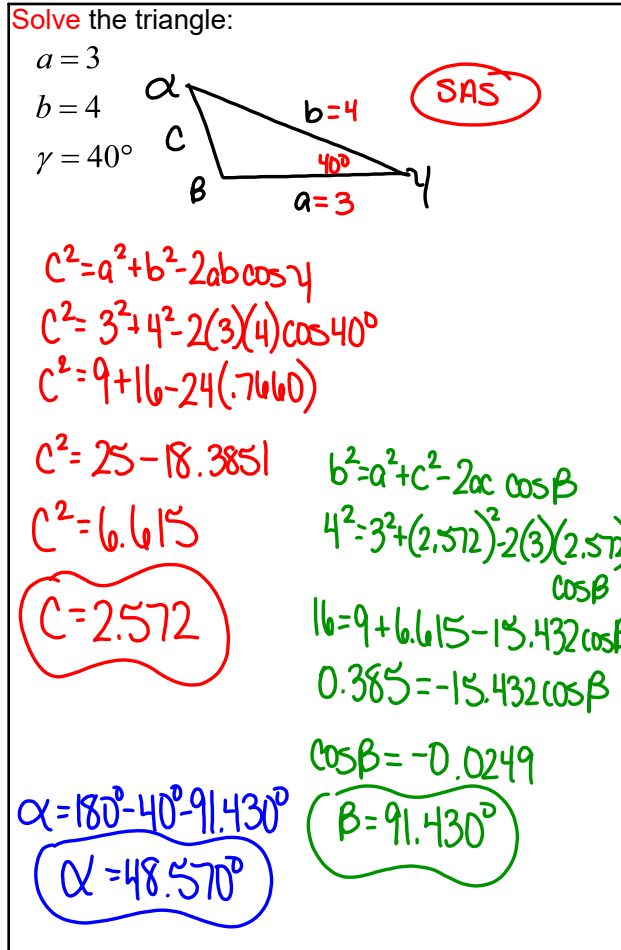 Solve the triangle:
a = 3
b = 4
γ = 40°
α
b=4
SAS
C
40°
B
a=3
γ
C²=a²+b²-2ab cosγ
C²=3²+4²-2(3)(4)cos40°
C²=9+16-24(.7660)
C²=25-18.3851
C²=6.615
C=2.572
b²=a²+c²-2ac cosβ
4²=3²+(2.572)²-2(3)(2.572)
cosβ
16=9+6.615-15.432cosβ
0.385=-15.432cosβ
cosβ=-0.0249
β=91.430°
α=180°-40°-91.430°
α=48.570°